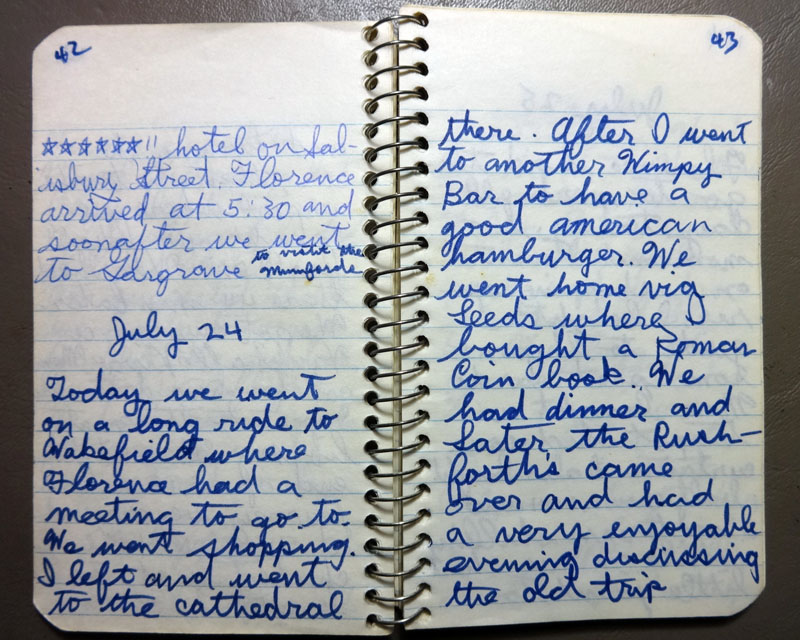 42
☆☆☆☆☆☆!! hotel on Sal-
isbury Street. Florence
arrived at 5:30 and
soonafter we went
to Gargrave to visit the
Mumfords
July 24
Today we went
on a long ride to
Wakefield where
Florence had a
meeting to go to.
We went shopping.
I left and went
to the cathedral
43
there. After I went
to another Wimpy
Bar to have a
good american
hamburger. We
went home via
Leeds where I
bought a Roman
Coin book. We
had dinner and
later the Rush-
forth's came
over and had
a very enjoyable
evening discussing
the old trip